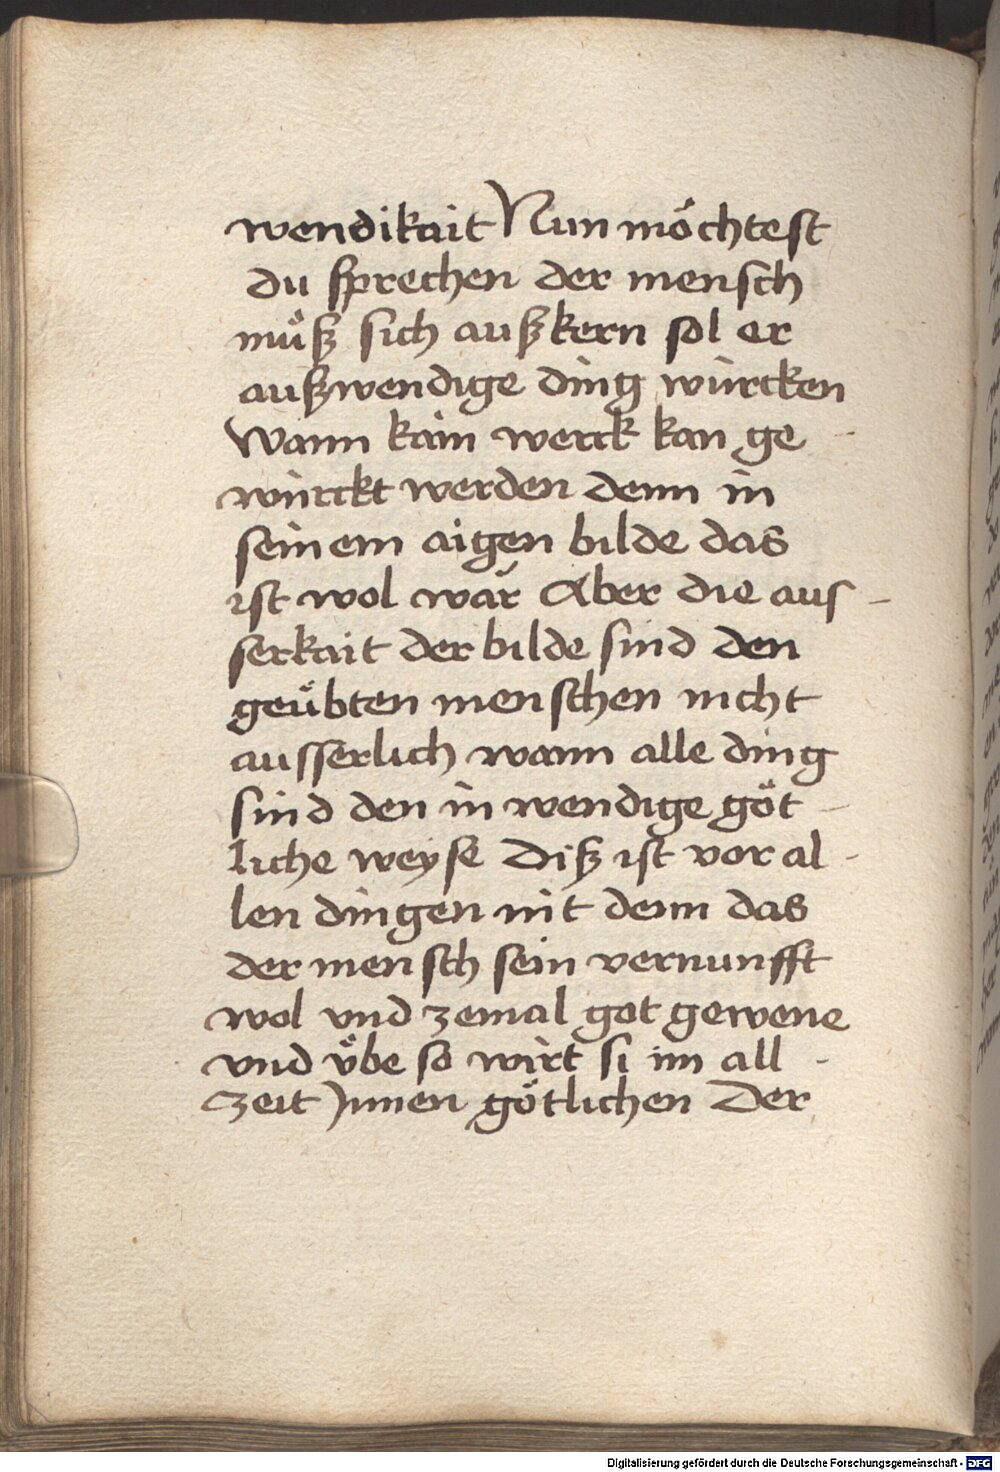 wendikait Nun möchtest
du sprechen der mensch
muͦß sich außkern sol er
außwendige ding würcken
Wann kain werck kan ge-
würckt werden denn in
seinem aigen bilde das
ist wol war Aber die aus-
serkait der bilde sind den
geuͤbten menschen nicht
ausserlich wann alle ding
sind den in wendige göt-
liche weyse Diß ist vor al-
len dingen nit denn das
der mensch sein vernunfft
wol vnd zemal got gewene
vnd vͤbe so wirt si im all-
zeit Jnnen götlichen Der
Digitalisierung gefördert durch die Deutsche Forschungsgemeinschaft - DFG